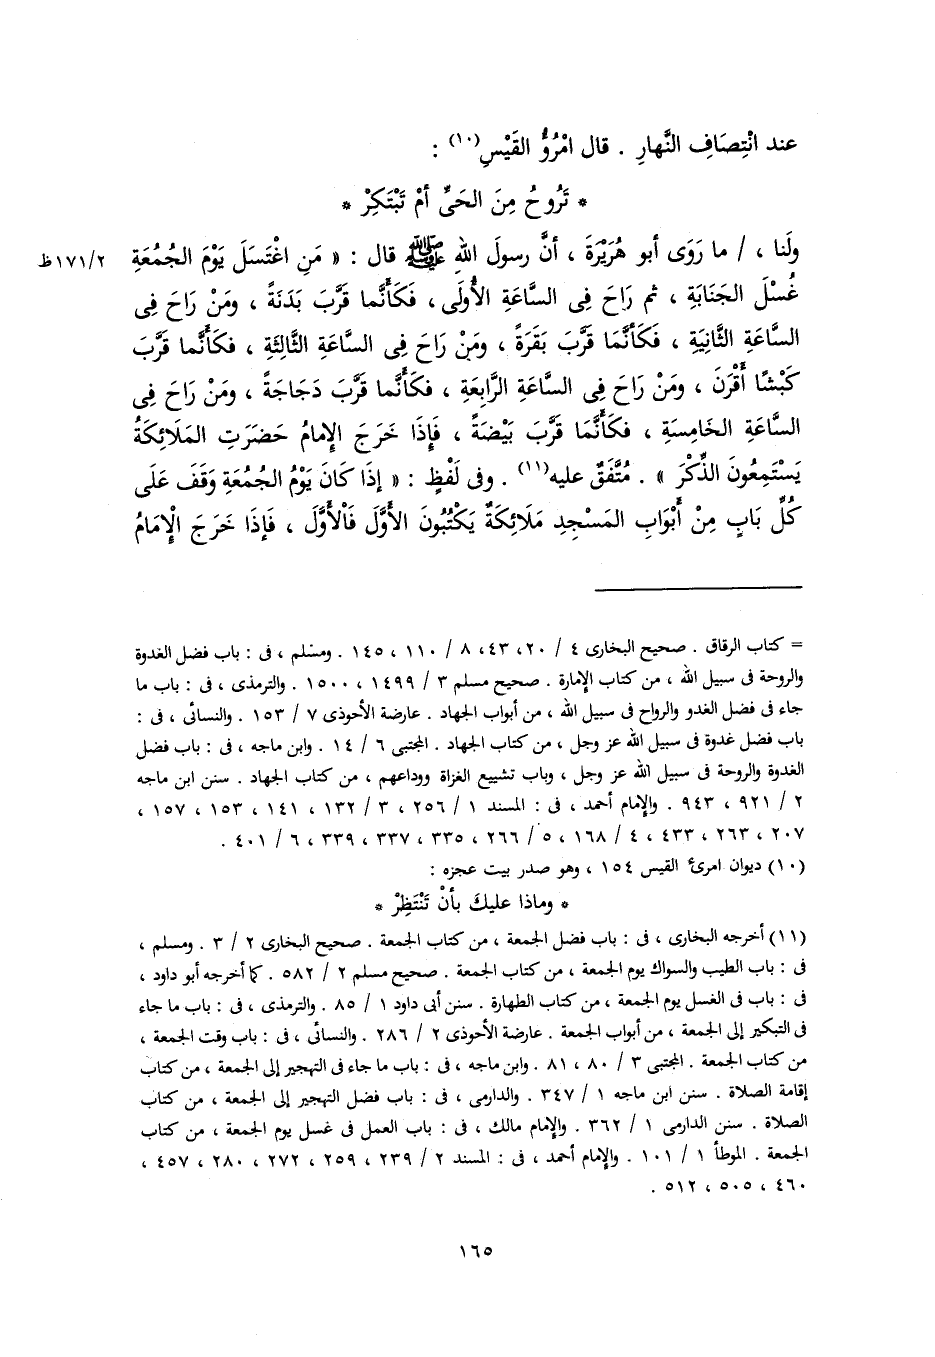 عند انْتِصَافِ النَّهارِ . قال امْرُؤُ القَيْسِ(١٠) :
* تَرُوحُ مِنَ الحَىِّ أمْ تَبْتَكِرْ *
ولَنا ، / ما رَوَى أبو هُرَيْرَةَ ، أنَّ رسولَ اللهِ ﷺ قال : « مَنِ اغْتَسَلَ يَوْمَ الجُمُعَةِ ١٧١/٢ظ
غُسْلَ الجَنَابَةِ ، ثم رَاحَ فِى السَّاعَةِ الأُولَى ، فَكَأَنَّما قَرَّبَ بَدَنَةً ، ومَنْ رَاحَ فِى
السَّاعَةِ الثَّانِيَةِ ، فَكَأنَّمَا قَرَّبَ بَقَرَةً ، ومَنْ رَاحَ فِى السَّاعَةِ الثَّالِثَةِ ، فكَأَنَّما قَرَّبَ
كَبْشًا أَقْرَنَ ، ومَنْ رَاحَ فِى السَّاعَةِ الرَّابِعَةِ ، فكَأَنَّما قَرَّبَ دَجَاجَةً ، ومَنْ رَاحَ فِى
السَّاعَةِ الخَامِسَةِ ، فكَأَنَّمَا قَرَّبَ بَيْضَةً ، فَإِذَا خَرَجَ الإِمامُ حَضَرَتِ المَلَائِكَةُ
يَسْتَمِعُونَ الذِّكْرَ » . مُتَّفَقٌ عليه(١١) . وفى لَفْظٍ : « إذَا كَانَ يَوْمُ الجُمُعَةِ وَقَفَ عَلَى
كُلِّ بَابٍ مِنْ أَبْوَابِ المَسْجِدِ مَلَائِكَةٌ يَكْتُبُونَ الأَوَّلَ فَالأَوَّلَ ، فَإِذَا خَرَجَ الْإِمَامُ
= كتاب الرقاق . صحيح البخارى ٤ / ٢٠، ٤٣، ٨ / ١١٠ ، ١٤٥ . ومسْلم ، فى : باب فضل الغدوة
والروحة فى سبيل الله ، من كتاب الإمارة . صحيح مسلم ٣ / ١٤٩٩ ، ١٥٠٠ . والترمذى ، فى : باب ما
جاء فى فضل الغدو والرواح فى سبيل الله ، من أبواب الجهاد . عارضة الأحوذى ٧ / ١٥٣ . والنسائى ، فى :
باب فضل غدوة فى سبيل الله عز وجل ، من كتاب الجهاد . المجتبى ٦ / ١٤ . وابن ماجه ، فى : باب فضل
الغدوة والروحة فى سبيل الله عز وجل ، وباب تشييع الغزاة ووداعهم ، من كتاب الجهاد . سنن ابن ماجه
٢ / ٩٢١ ، ٩٤٣ . والإمام أحمد ، فى : المسند ١ / ٢٥٦ ، ٣ / ١٣٢ ، ١٤١ ، ١٥٣ ، ١٥٧ ،
٢٠٧ ، ٢٦٣ ، ٤٣٣ ، ٤ / ١٦٨ ، ٥ / ٢٦٦ ، ٣٣٥ ، ٣٣٧ ، ٣٣٩ ، ٦ / ٤٠١ .
(١٠) ديوان امرئ القيس ١٥٤ ، وهو صدر بيت عجزه :
* وماذا عليكَ بأنْ تَنْتَظِرْ *
(١١) أخرجه البخارى ، فى : باب فضل الجمعة ، من كتاب الجمعة . صحيح البخارى ٢ / ٣ . ومسلم ،
فى : باب الطيب والسواك يوم الجمعة ، من كتاب الجمعة . صحيح مسلم ٢ / ٥٨٢ . كما أخرجه أبو داود ،
فى : باب فى الغسل يوم الجمعة ، من كتاب الطهارة . سنن أبى داود ١ / ٨٥ . والترمذى ، فى : باب ما جاء
فى التبكير إلى الجمعة ، من أبواب الجمعة . عارضة الأحوذى ٢ / ٢٨٦ . والنسائى ، فى : باب وقت الجمعة ،
من كتاب الجمعة . المجتبى ٣ / ٨٠ ، ٨١ . وابن ماجه ، فى : باب ما جاء فى التهجير إلى الجمعة ، من كتاب
إقامة الصلاة . سنن ابن ماجه ١ / ٣٤٧ . والدارمى ، فى : باب فضل التهجير إلى الجمعة ، من كتاب
الصلاة . سنن الدارمى ١ / ٣٦٢ . والإمام مالك ، فى : باب العمل فى غسل يوم الجمعة ، من كتاب
الجمعة . الموطأ ١ / ١٠١ . والإمام أحمد ، فى : المسند ٢ / ٢٣٩ ، ٢٥٩ ، ٢٧٢ ، ٢٨٠ ، ٤٥٧ ،
٤٦٠ ، ٥٠٥ ، ٥١٢ .
١٦٥